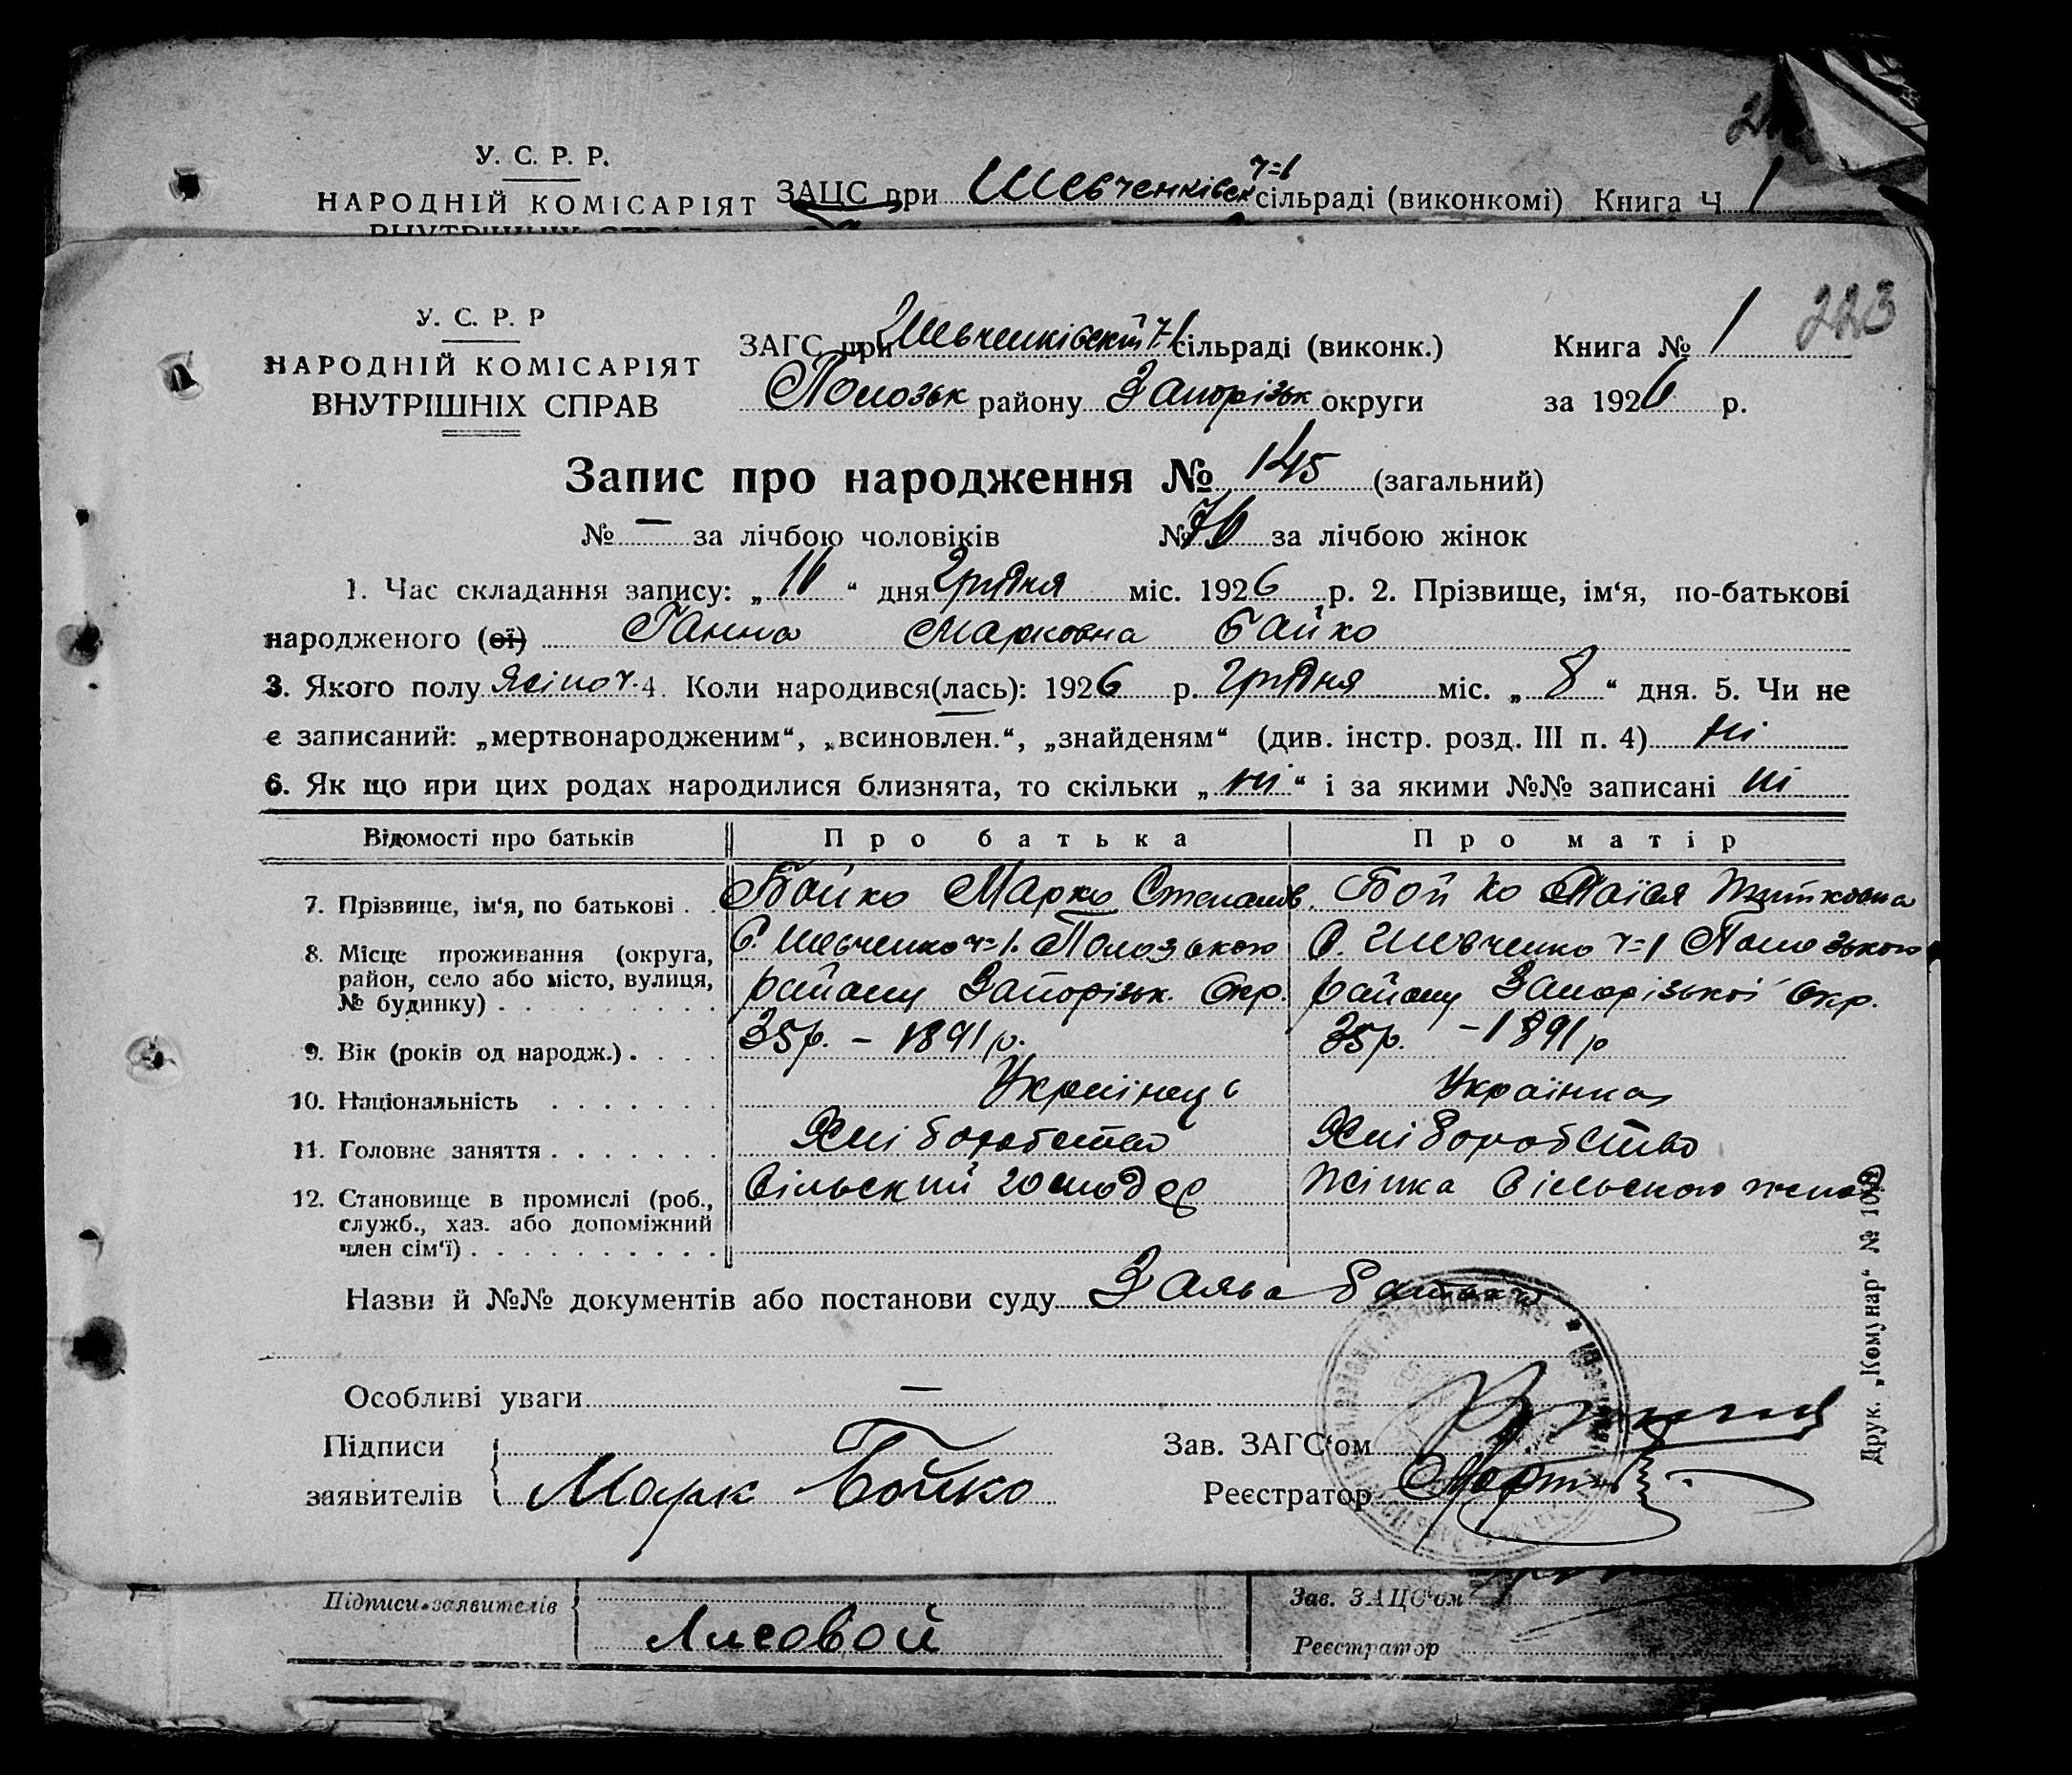 У. С. Р. Р.
НАРОДНІЙ КОМІСАРІЯТ ЗАЦС при Шевченківськ ч=1 сільраді (виконкомі) Книга Ч 1
У. С. Р. Р
НАРОДНІЙ КОМІСАРІЯТ
ВНУТРІШНІХ СПРАВ
223
ЗАГС при Шевченківській ч-1 сільраді (виконк.) Книга № 1
Пологськ району Запорізьк округи за 1926 р.
Запис про народження № 145 (загальний)
№ — за лічбою чоловіків № 76 за лічбою жінок
1. Час складання запису: „ “ дня Грудня міс. 1926 р. 2. Прізвище, ім‘я, по-батькові
народженого (ої) Ганна Марковна Байко
3. Якого полу жіноч. 4. Коли народився(лась): 1926 р. Грудня міс. „ 8 “ дня. 5. Чи не
є записаний: „мертвонародженим“, „всиновлен.“, „знайденям“ (див. інстр. розд. III п. 4) ні
6. Як що при цих родах народилися близнята, то скільки „ ні “ і за якими №№ записані ні
Відомості про батьків Про батька Про матір
7. Прізвище, ім‘я, по батькові . . Бойко Марко Степанов. Бойко
8. Місце проживання (округа, район, село або місто, вулиця, № будинку) . . . . . . . . .
С. Шевченко ч=1. Пологського С. Шевченко ч=1 Пологського
району Запорізьк. Окр. району Запорізької Окр.
9. Вік (років од народж.) . . . . 35р. – 1891р. 35р. – 1891р
10. Національність . . . . . . . Українець Українка
11. Головне заняття . . . . . . . Хліборобство Хліборобство
12. Становище в промислі (роб., служб., хаз. або допоміжний член сім‘ї) . . . . . . . . . .
Сільский господар Жінка Сільского
Назви й №№ документів або постанови суду Заява батька
Особливі уваги —
Підписи
заявителів Марк Бойко
Зав. ЗАГС‘ом
Реєстратор
Друк. „Комунар“ №
Підписи заявителів Лисовой
Зав. ЗАЦС‘ом
Реєстратор